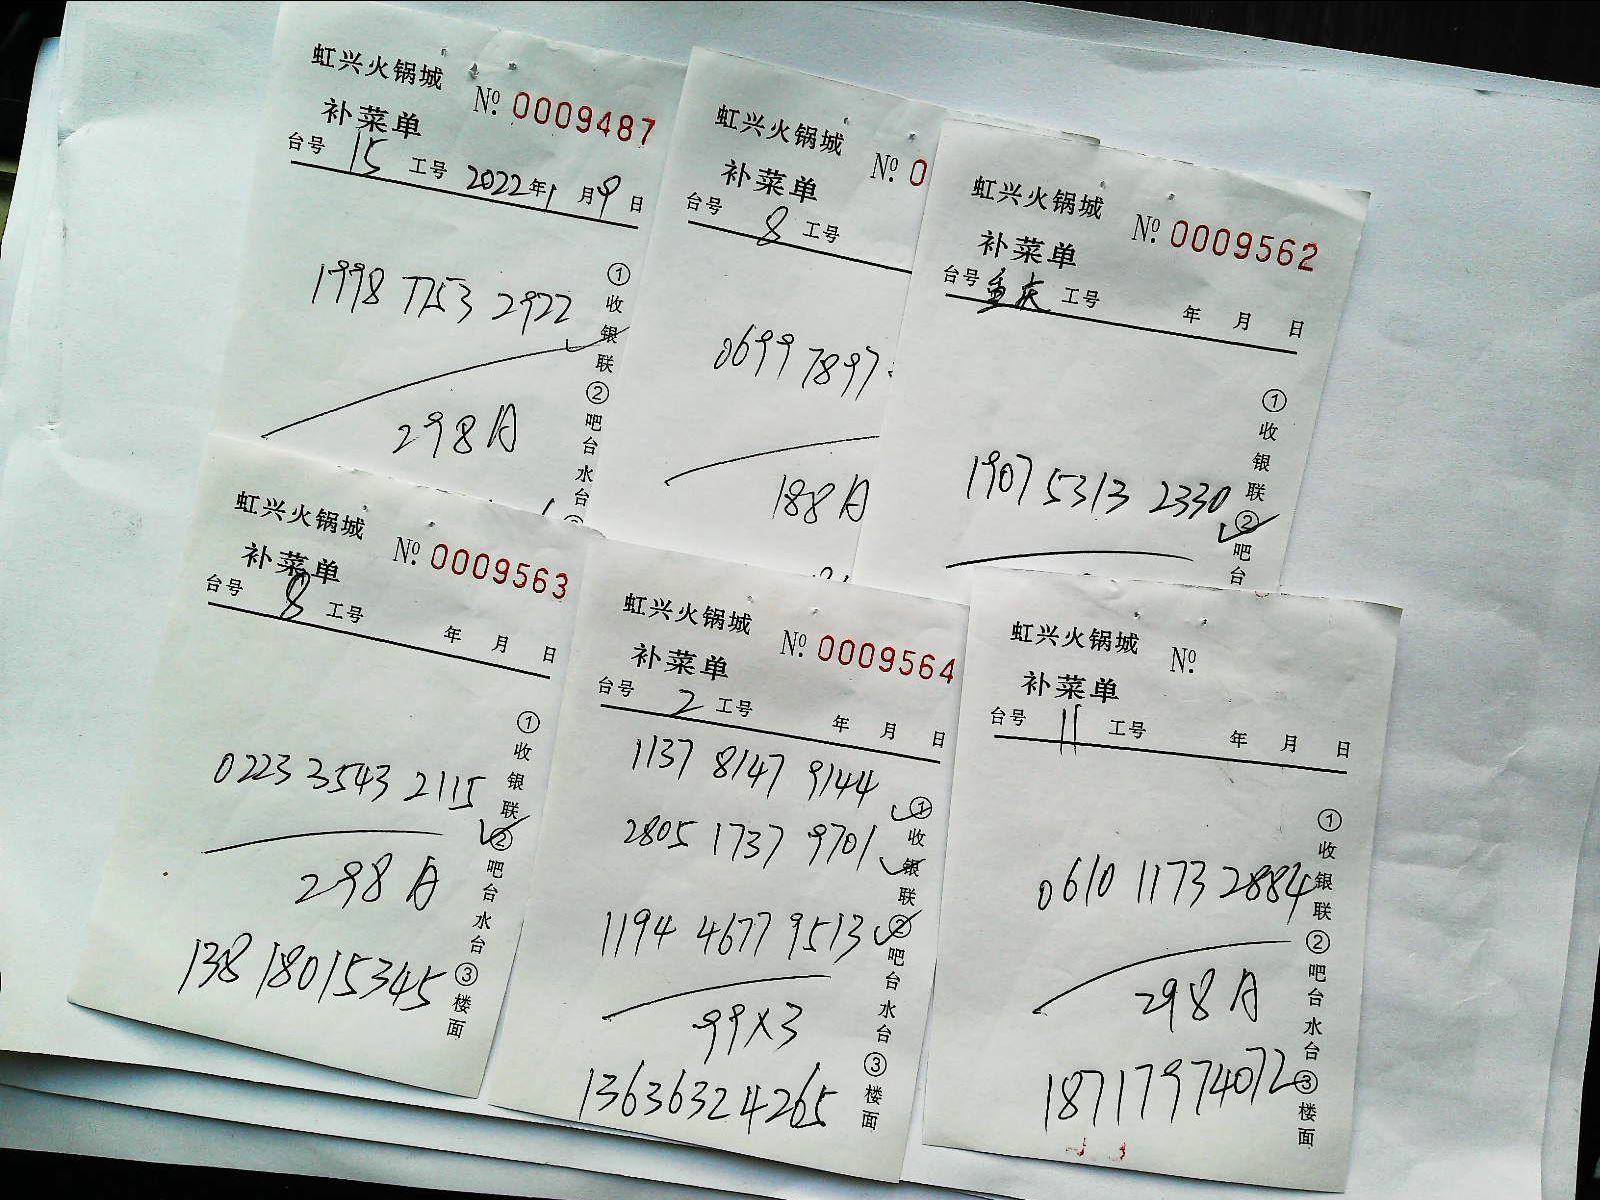 虹兴火锅城
№ 0009487
补菜单
台号 15 工号 2022年1月9日
1998 7753 2922
298A
①收银联②吧台水台
虹兴火锅城
№ 0
补菜单
台号 8 工号
0699 7897
188A
虹兴火锅城
№ 0009562
补菜单
台号 重庆 工号 年 月 日
1907 5313 2330
①收银联②吧台
虹兴火锅城
№ 0009563
补菜单
台号 8 工号 年 月 日
0223 3543 2115
298A
13818015345
①收银联②吧台水台③楼面
虹兴火锅城
№ 0009564
补菜单
台号 2 工号 年 月 日
1137 8147 9144
2805 1737 9701
1194 4677 9513
99×3
13636324265
①收银联②吧台水台③楼面
虹兴火锅城
№
补菜单
台号 11 工号 年 月 日
0610 1173 2884
298A
18717974072
①收银联②吧台水台③楼面